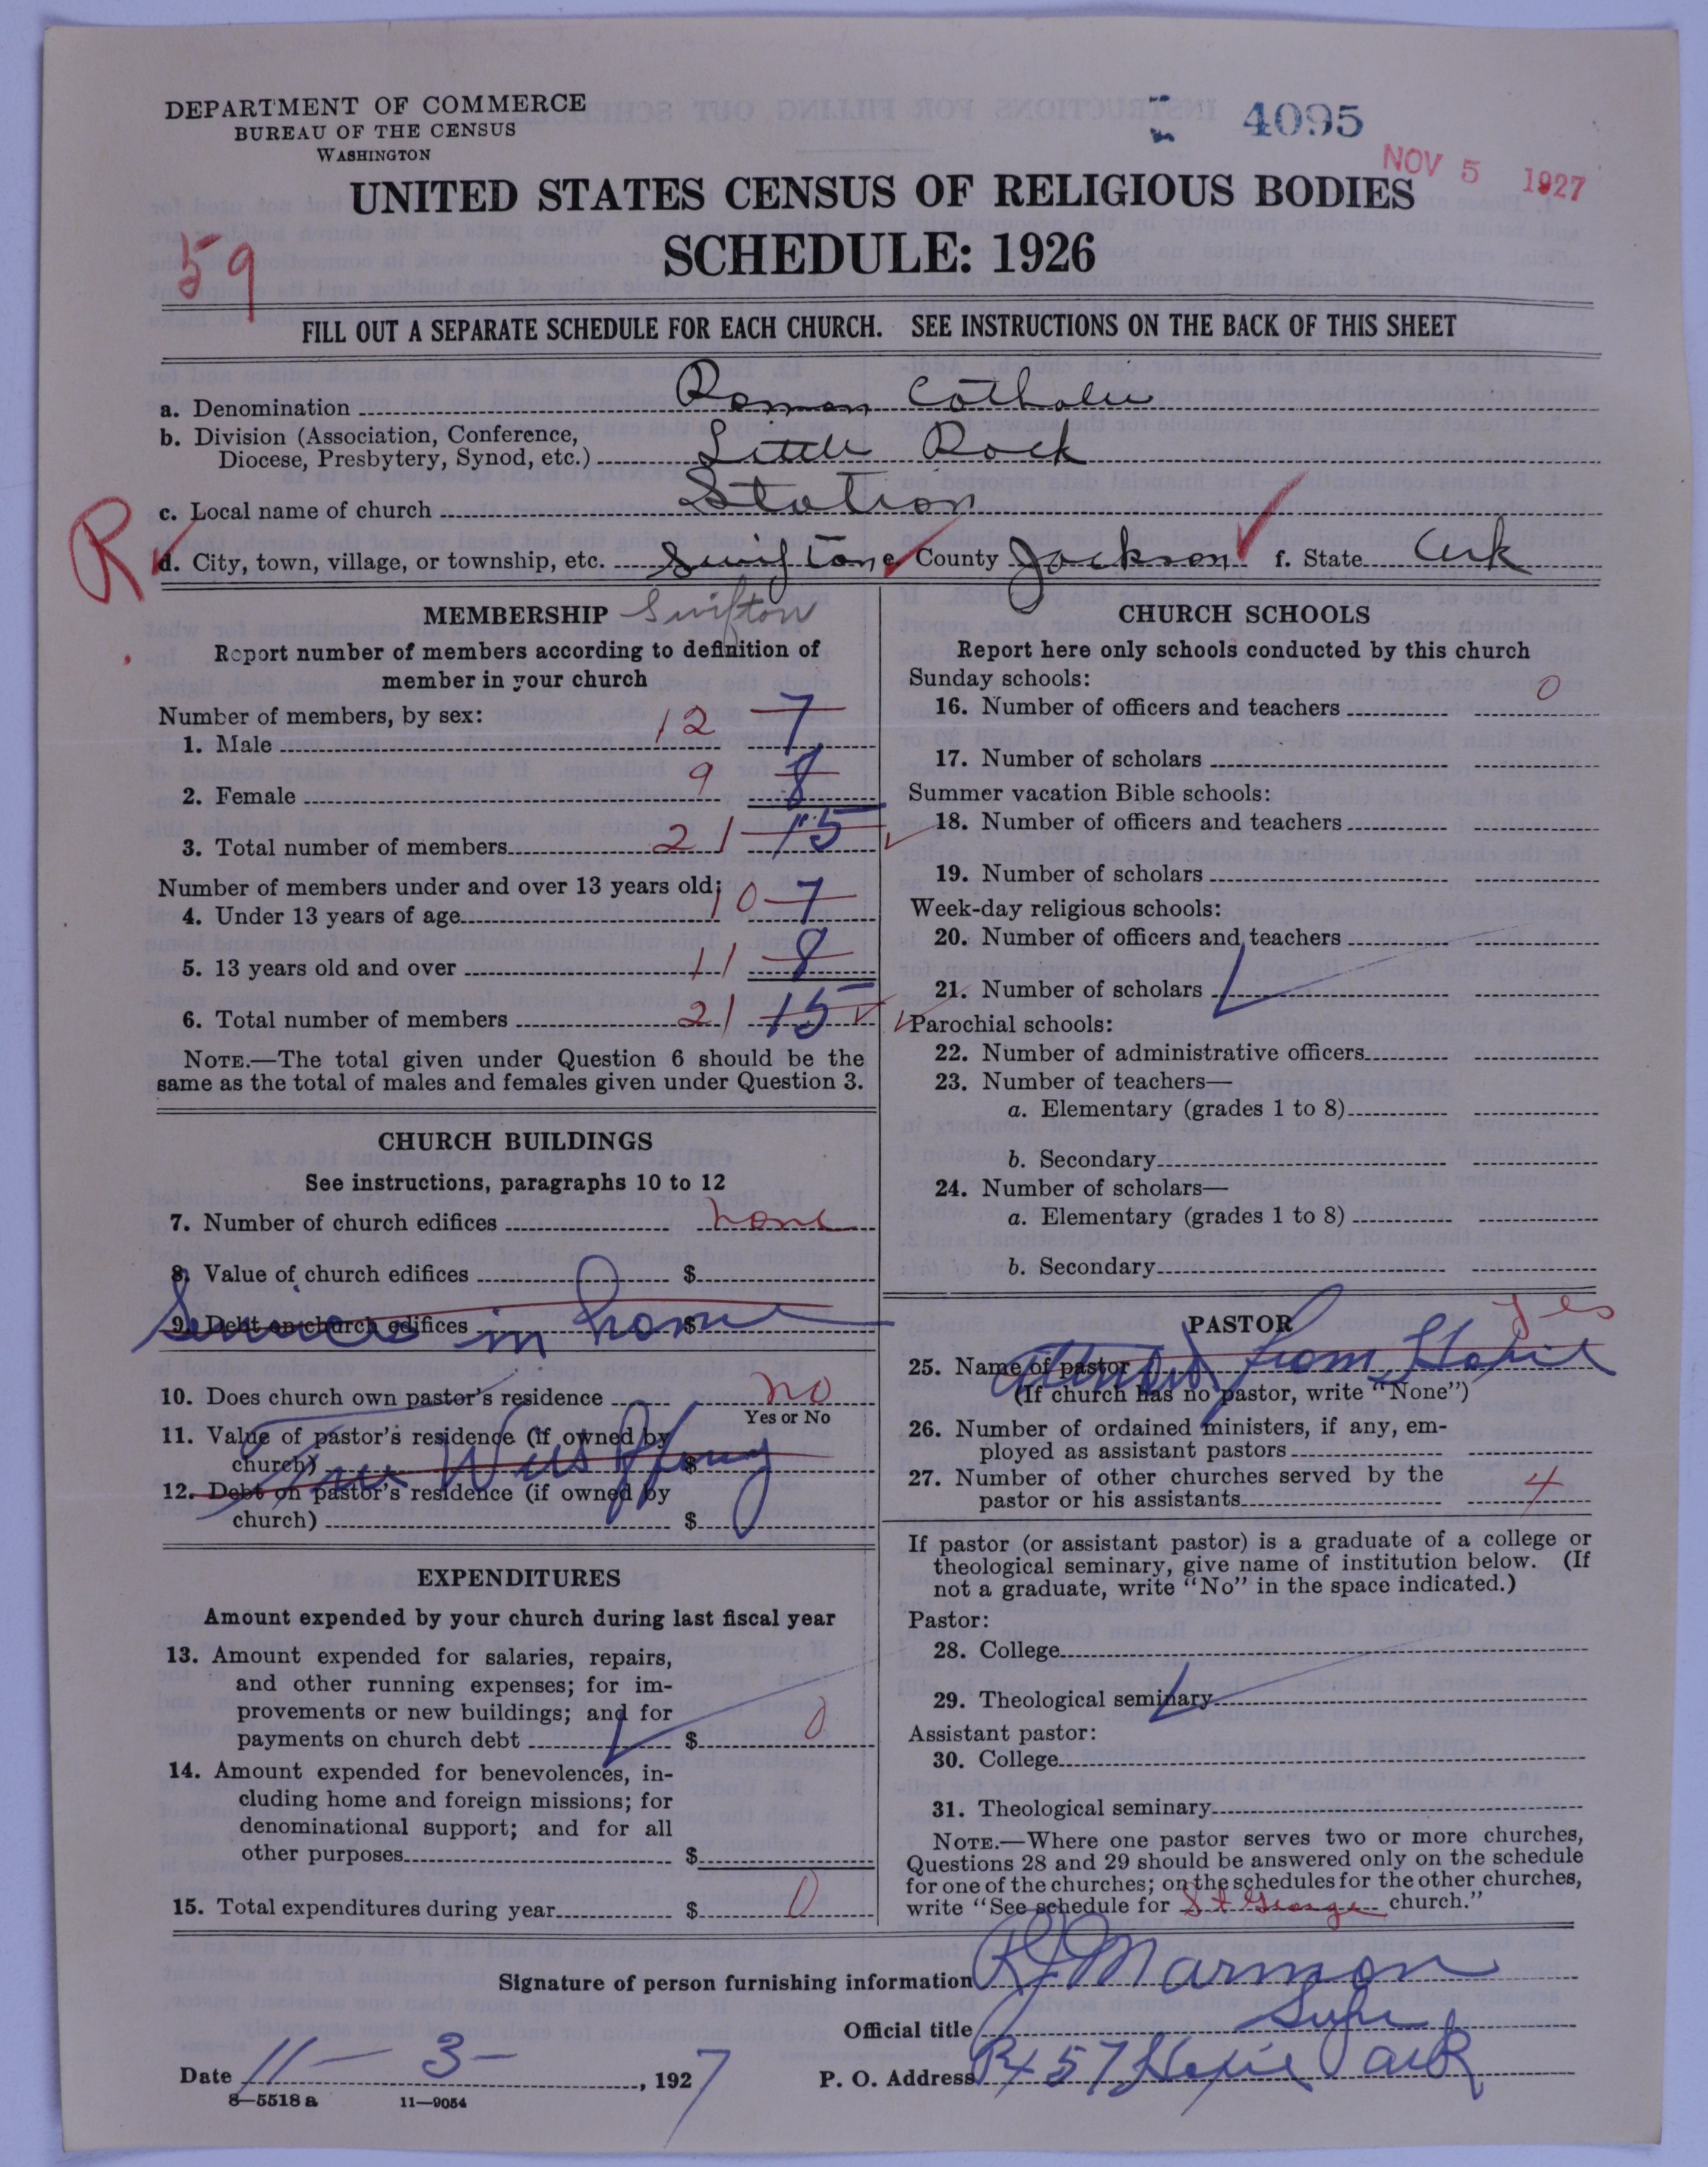 DEPARTMENT OF COMMERCE
BUREAU OF THE CENSUS
WASHINGTON
4095
NOV 5 1927
UNITED STATES CENSUS OF RELIGIOUS BODIES
SCHEDULE: 1926
59
FILL OUT A SEPARATE SCHEDULE FOR EACH CHURCH. SEE INSTRUCTIONS ON THE BACK OF THIS SHEET
a. Denomination Roman Catholic
b. Division (Association, Conference,
Diocese, Presbytery, Synod, etc.) Little Rock
c. Local name of church Station
R
d. City, town, village, or township, etc. Swifton e. County Jackson f. State Ark
MEMBERSHIP Swifton
Report number of members according to definition of
member in your church
Number of members, by sex:
1. Male 12 7
2. Female 9 8
3. Total number of members 21 15
Number of members under and over 13 years old:
4. Under 13 years of age 10 7
5. 13 years old and over 11 8
6. Total number of members 21 15
NOTE.—The total given under Question 6 should be the
same as the total of males and females given under Question 3.
CHURCH BUILDINGS
See instructions, paragraphs 10 to 12
7. Number of church edifices none
8. Value of church edifices $
9. Debt on church edifices $
Services in home
10. Does church own pastor's residence no
Yes or No
11. Value of pastor's residence (if owned by
church) $
12. Debt on pastor's residence (if owned by
church) $
EXPENDITURES
Amount expended by your church during last fiscal year
13. Amount expended for salaries, repairs,
and other running expenses; for im-
provements or new buildings; and for
payments on church debt $ 0
14. Amount expended for benevolences, in-
cluding home and foreign missions; for
denominational support; and for all
other purposes $
15. Total expenditures during year $ 0
CHURCH SCHOOLS
Report here only schools conducted by this church
Sunday schools:
16. Number of officers and teachers 0
17. Number of scholars
Summer vacation Bible schools:
18. Number of officers and teachers
19. Number of scholars
Week-day religious schools:
20. Number of officers and teachers
21. Number of scholars
Parochial schools:
22. Number of administrative officers
23. Number of teachers—
a. Elementary (grades 1 to 8)
b. Secondary
24. Number of scholars—
a. Elementary (grades 1 to 8)
b. Secondary
PASTOR
Yes
25. Name of pastor Attended from
(If church has no pastor, write "None")
26. Number of ordained ministers, if any, em-
ployed as assistant pastors
27. Number of other churches served by the
pastor or his assistants 4
If pastor (or assistant pastor) is a graduate of a college or
theological seminary, give name of institution below. (If
not a graduate, write "No" in the space indicated.)
Pastor:
28. College
29. Theological seminary
Assistant pastor:
30. College
31. Theological seminary
NOTE.—Where one pastor serves two or more churches,
Questions 28 and 29 should be answered only on the schedule
for one of the churches; on the schedules for the other churches,
write "See schedule for St George church."
Signature of person furnishing information R J Marmon
Official title Supr
Date 11—3—, 1927
P. O. Address Ark
8—5518 a 11—9054